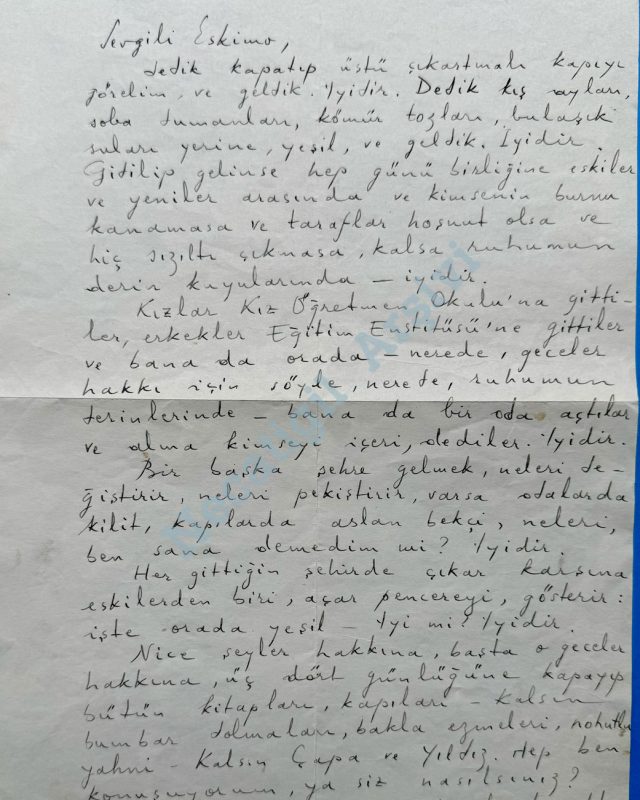 Sevgili Eskimo,
Dedik kapatıp üstü çıkartmalı kapıyı
görelim, ve geldik. İyidir. Dedik kış ayları,
soba dumanları, kömür tozları, bulaşık
suları yerine, yeşil, ve geldik. İyidir.
Gidilip gelinse hep günü birliğine eskiler
ve yeniler arasında ve kimsenin burnu
kanamasa ve taraflar hoşnut olsa ve
hiç sızıltı çıkmasa, kalsa ruhumun
derin kuyularında – iyidir.
Kızlar Kız Öğretmen Okulu'na gitti-
ler, erkekler Eğitim Enstitüsü'ne gittiler
ve bana da orada – nerede, geceler
hakkı için söyle, nerede, ruhumun
derinlerinde – bana da bir oda açtılar
ve alma kimseyi içeri, dediler. İyidir.
Bir başka şehre gelmek, neleri de-
ğiştirir, neleri pekiştirir, varsa odalarda
kilit, kapılarda aslan bekçi, neleri,
ben sana demedim mi? İyidir.
Her gittiğin şehirde çıkar karşına
eskilerden biri, açar pencereyi, gösterir:
işte orada yeşil – İyi mi? İyidir.
Nice şeyler hakkına, başta o geceler
hakkına, üç dört günlüğüne kapayıp
bütün kitapları, kapıları – Kalsın
bumbar dolmaları, bakla ezmeleri, nohutlu
yahni – Kalsın Çapa ve Yıldız. Hep ben
konuşuyorum, ya siz nasılsınız?
Necatigil Arşivi